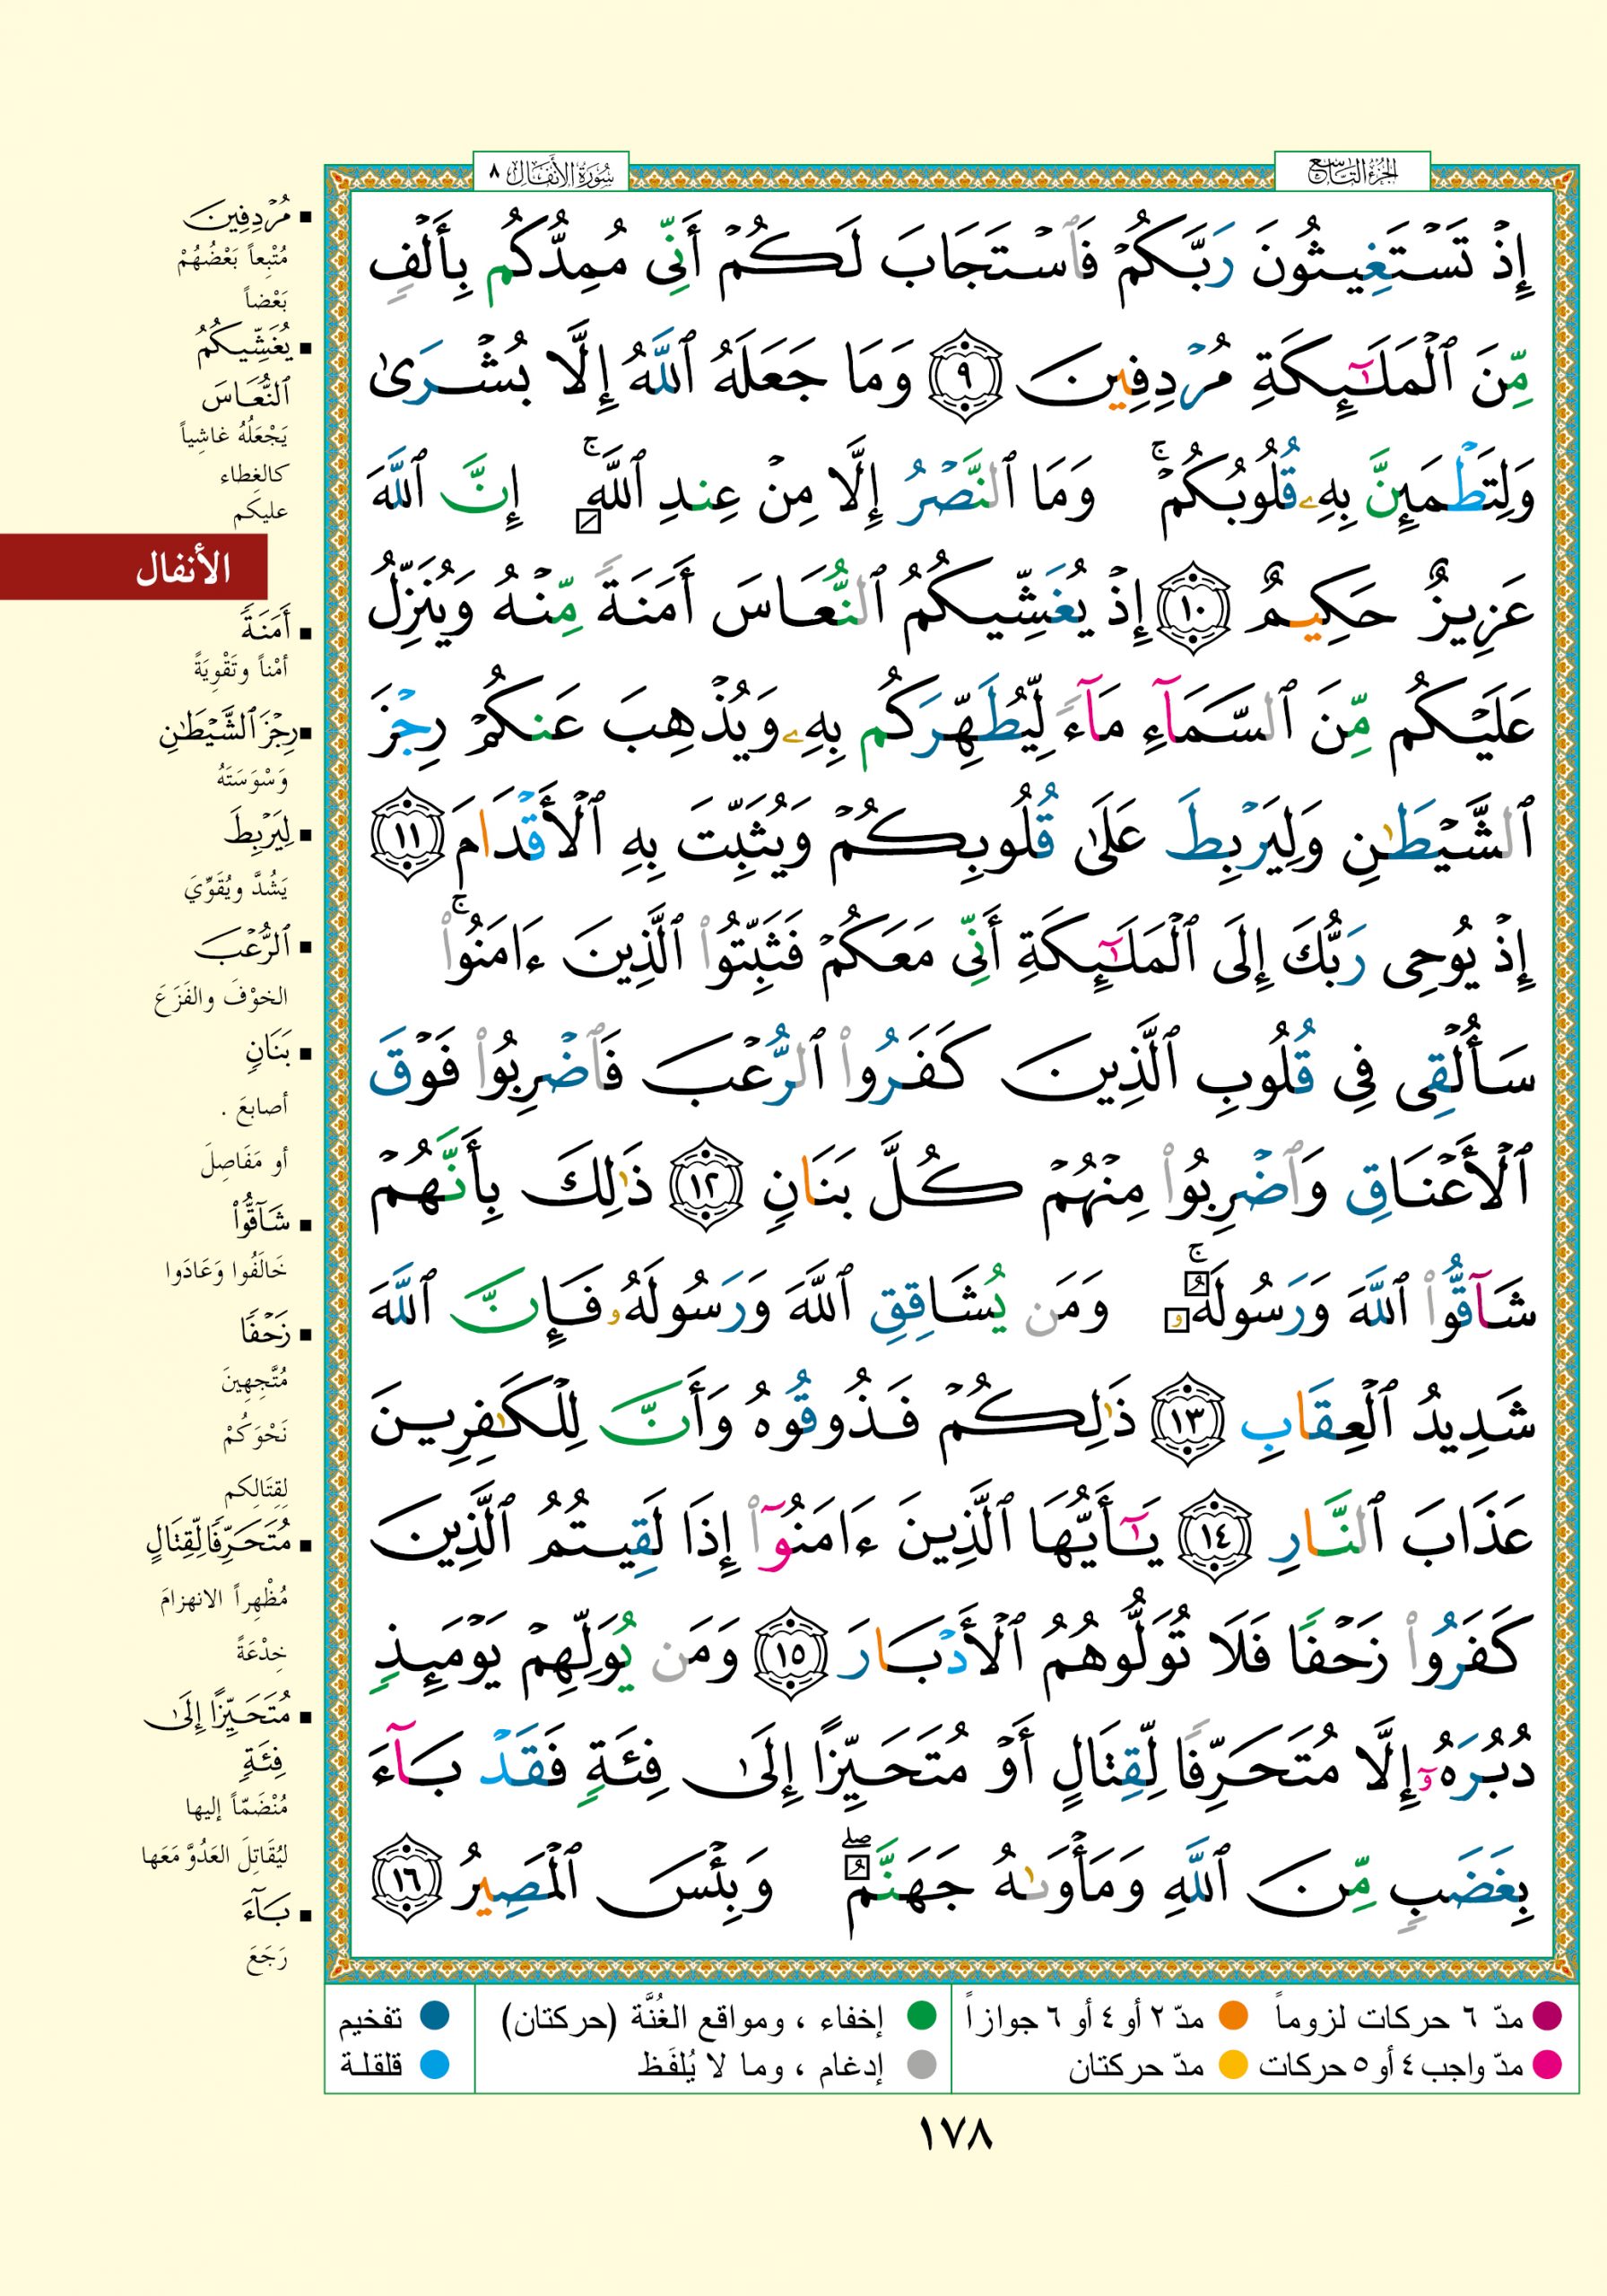 الجزء التاسع
سورة الأنفال ٨
إِذۡ تَسۡتَغِيثُونَ رَبَّكُمۡ فَٱسۡتَجَابَ لَكُمۡ أَنِّي مُمِدُّكُم بِأَلۡفٖ
مِّنَ ٱلۡمَلَٰٓئِكَةِ مُرۡدِفِينَ ٩ وَمَا جَعَلَهُ ٱللَّهُ إِلَّا بُشۡرَىٰ
وَلِتَطۡمَئِنَّ بِهِۦ قُلُوبُكُمۡۚ وَمَا ٱلنَّصۡرُ إِلَّا مِنۡ عِندِ ٱللَّهِۚ إِنَّ ٱللَّهَ
عَزِيزٌ حَكِيمٌ ١٠ إِذۡ يُغَشِّيكُمُ ٱلنُّعَاسَ أَمَنَةٗ مِّنۡهُ وَيُنَزِّلُ
عَلَيۡكُم مِّنَ ٱلسَّمَآءِ مَآءٗ لِّيُطَهِّرَكُم بِهِۦ وَيُذۡهِبَ عَنكُمۡ رِجۡزَ
ٱلشَّيۡطَٰنِ وَلِيَرۡبِطَ عَلَىٰ قُلُوبِكُمۡ وَيُثَبِّتَ بِهِ ٱلۡأَقۡدَامَ ١١
إِذۡ يُوحِي رَبُّكَ إِلَى ٱلۡمَلَٰٓئِكَةِ أَنِّي مَعَكُمۡ فَثَبِّتُواْ ٱلَّذِينَ ءَامَنُواْۚ
سَأُلۡقِي فِي قُلُوبِ ٱلَّذِينَ كَفَرُواْ ٱلرُّعۡبَ فَٱضۡرِبُواْ فَوۡقَ
ٱلۡأَعۡنَاقِ وَٱضۡرِبُواْ مِنۡهُمۡ كُلَّ بَنَانٖ ١٢ ذَٰلِكَ بِأَنَّهُمۡ
شَآقُّواْ ٱللَّهَ وَرَسُولَهُۥۚ وَمَن يُشَاقِقِ ٱللَّهَ وَرَسُولَهُۥ فَإِنَّ ٱللَّهَ
شَدِيدُ ٱلۡعِقَابِ ١٣ ذَٰلِكُمۡ فَذُوقُوهُ وَأَنَّ لِلۡكَٰفِرِينَ
عَذَابَ ٱلنَّارِ ١٤ يَٰٓأَيُّهَا ٱلَّذِينَ ءَامَنُوٓاْ إِذَا لَقِيتُمُ ٱلَّذِينَ
كَفَرُواْ زَحۡفٗا فَلَا تُوَلُّوهُمُ ٱلۡأَدۡبَارَ ١٥ وَمَن يُوَلِّهِمۡ يَوۡمَئِذٖ
دُبُرَهُۥٓ إِلَّا مُتَحَرِّفٗا لِّقِتَالٍ أَوۡ مُتَحَيِّزًا إِلَىٰ فِئَةٖ فَقَدۡ بَآءَ
بِغَضَبٖ مِّنَ ٱللَّهِ وَمَأۡوَىٰهُ جَهَنَّمُۖ وَبِئۡسَ ٱلۡمَصِيرُ ١٦
▪ مُرۡدِفِينَ
مُتْبِعاً بَعْضُهُمْ
بَعْضاً
▪ يُغَشِّيكُمُ
ٱلنُّعَاسَ
يَجْعَلُهُ غاشِياً
كالغِطاء
عليكَم
الأنفال
▪ أَمَنَةٗ
أمْناً وتَقْوِيَةً
▪ رِجۡزَ ٱلشَّيۡطَٰنِ
وَسْوَسَتَهُ
▪ لِيَرۡبِطَ
يَشُدَّ ويُقَوِّيَ
▪ ٱلرُّعۡبَ
الخوْفَ والفَزَعَ
▪ بَنَانٖ
أصابعَ .
أو مَفَاصِلَ
▪ شَآقُّواْ
خَالَفُوا وَعَادَوا
▪ زَحۡفٗا
مُتَّجِهِينَ
نَحْوَكُمْ
لِقِتَالِكم
▪ مُتَحَرِّفٗا لِّقِتَالٍ
مُظْهِراً الانهزامَ
خِدْعَةً
▪ مُتَحَيِّزًا إِلَىٰ
فِئَةٖ
مُنْضَمّاً إليها
ليُقَاتِلَ العَدُوَّ مَعَها
▪ بَآءَ
رَجَعَ
مدّ ٦ حركات لزوماً مدّ ٢ أو ٤ أو ٦ جوازاً
مدّ واجب ٤ أو ٥ حركات مدّ حركتان
إخفاء ، ومواقع الغُنَّة (حركتان)
إدغام ، وما لا يُلفَظ
تفخيم
قلقلة
١٧٨